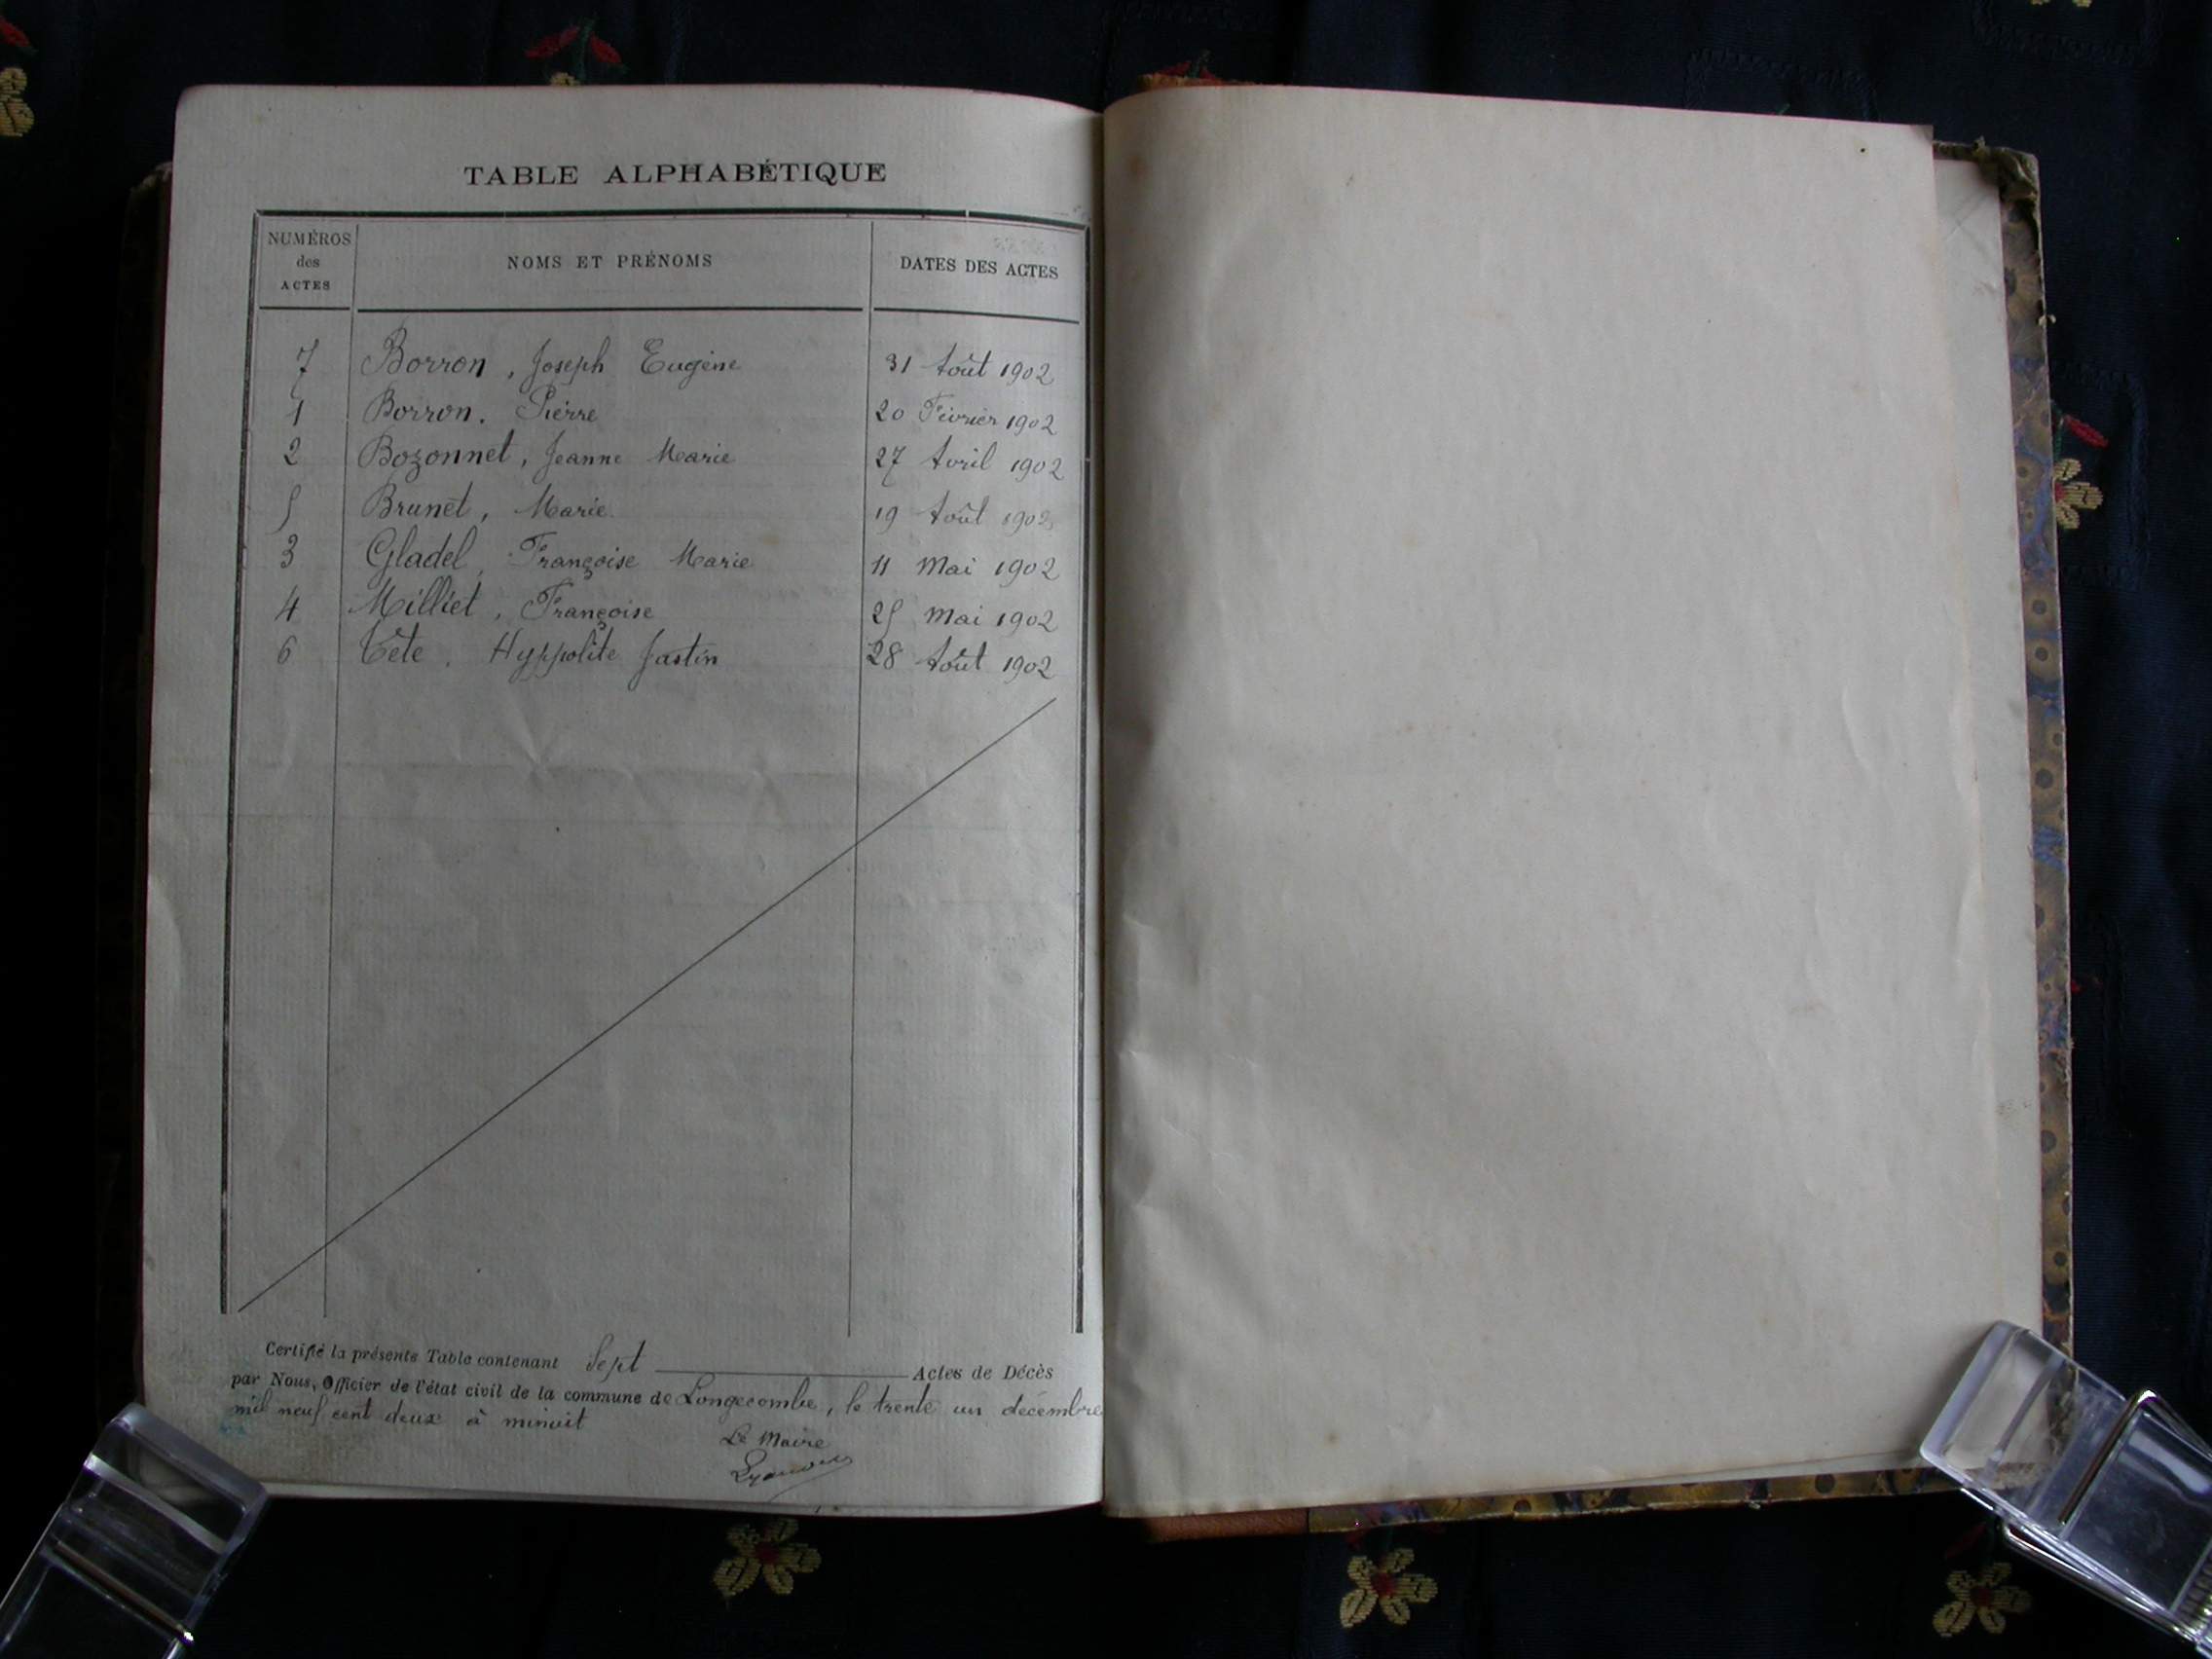 TABLE ALPHABÉTIQUE
NUMÉROS des ACTES NOMS ET PRÉNOMS DATES DES ACTES
7 Borron, Joseph Eugène 31 Août 1902
1 Borron. Pierre 20 Février 1902
2 Bozonnet, Jeanne Marie 27 Avril 1902
5 Brunet, Marie 19 Août 1902
3 Gladel, Françoise Marie 11 Mai 1902
4 Milliet, Françoise 25 Mai 1902
6 Tête, Hyppolite Justin 28 Août 1902
Certifié la présente Table contenant Sept Actes de Décès
par Nous, Officier de l'état civil de la commune de Longecombe, le trente un décembre
mil neuf cent deux à minuit
Le Maire